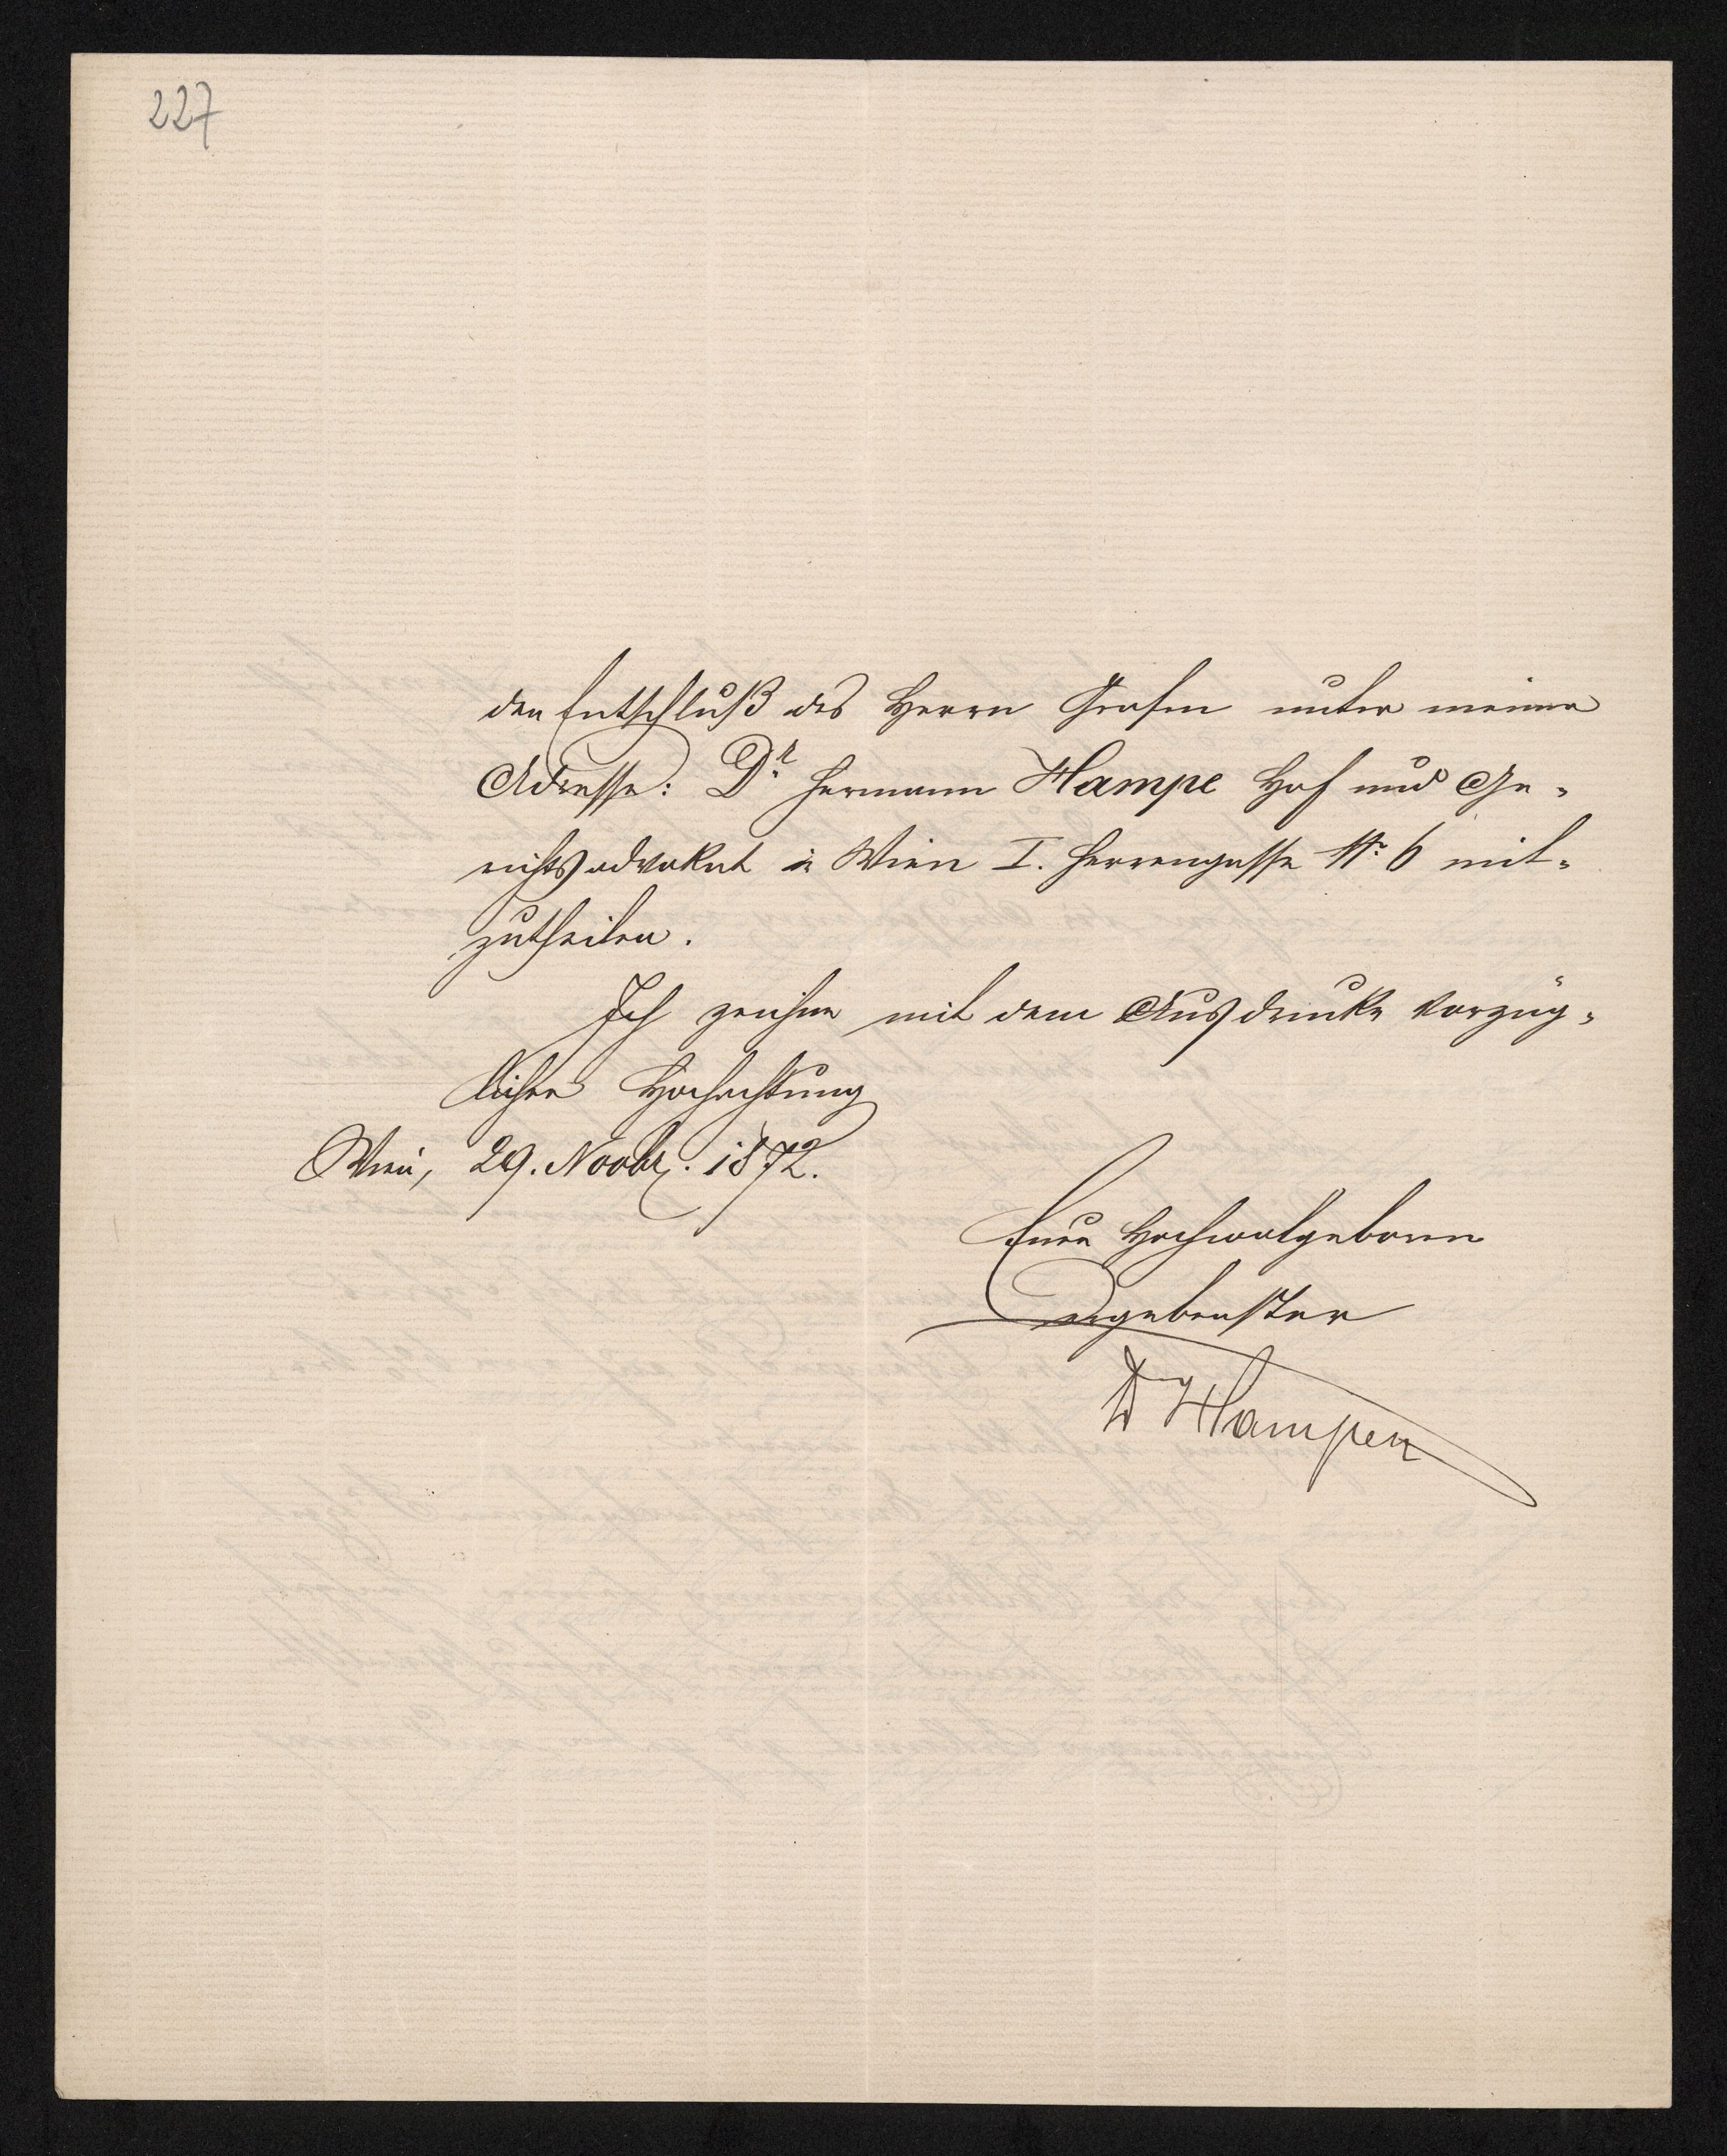 227
den Entschluß des Herrn Grafen unter meiner
Adresse: Dr. Hermann Hampe Hof und Ge-
richtsadvokat in Wien I. Herrengasse No. 6 mit-
zutheilen.
Ich zeichne mit dem Ausdrucke vorzüg-
licher Hochachtung
Wien, 29. Novbr. 1872.
Euer Hochwolgeboren
Ergebenster
Dr Hampe